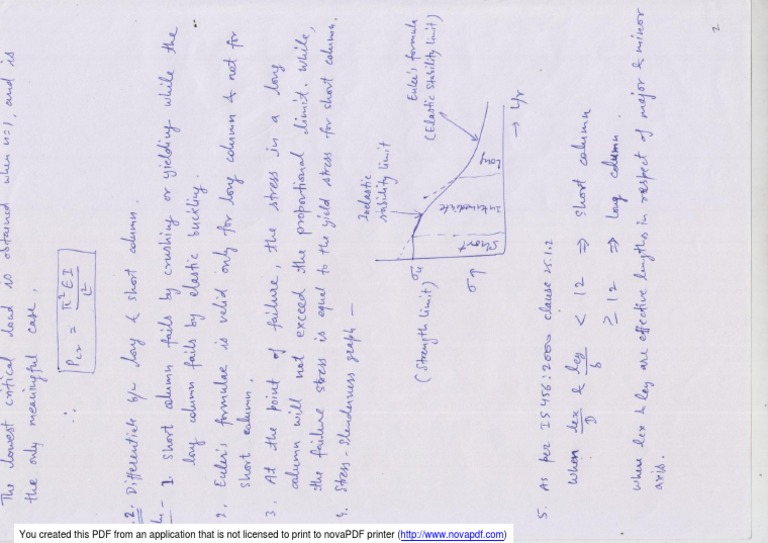 The lowest critical load is obtained when n=1, and is
the only meaningful case,
∴ Pcr = π²EI / L²
2. Differentiate b/w long & short column.
1. Short column fails by crushing or yielding while the
long column fails by elastic buckling.
2. Euler's formulae is valid only for long column & not for
short column.
3. At the point of failure, the stress in a long
column will not exceed the proportional limit. While,
the failure stress is equal to the yield stress for short column.
4. Stress - Slenderness graph —
Euler's formula
(Elastic stability limit)
Inelastic
stability limit
(Strength limit) σu
σ↑
Short
Intermediate
Long
→ L/r
5. As per IS 456:2000 clause 25.1.2
when lex/D & ley/b < 12 ⇒ short column
≥ 12 ⇒ long column.
where lex & ley are effective lengths in respect of major & minor
axis.
2
You created this PDF from an application that is not licensed to print to novaPDF printer (http://www.novapdf.com)